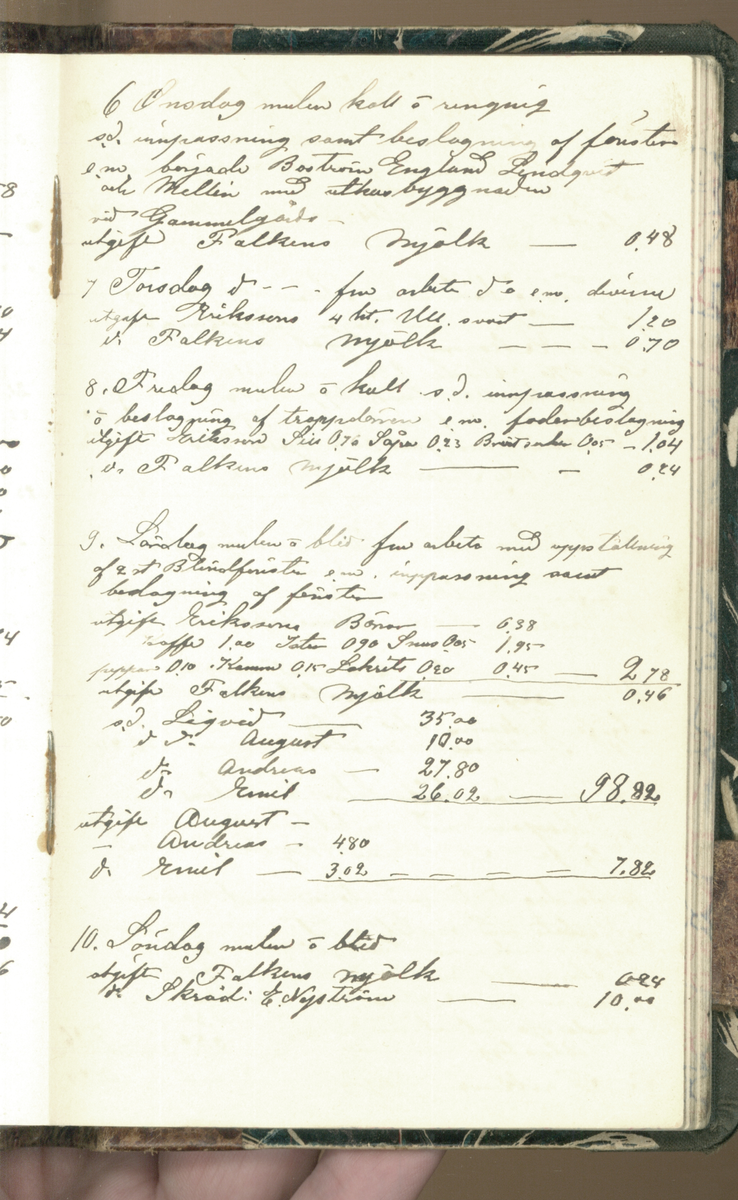 6 Onsdag mulen kall ō rengnig
s.d. innpassning samt beslagning af fönster
e.m. började Boström Englund Lindqvist
och Mellin med uthusbyggnaden
vid Gammelgårds
utgift Falkens Mjölk — 0,48
7 Torsdag d° - - - fm arbete d° ō e.m. diverse
utgift Erikssons 4 ht. Ull. svart — 1,20
d. Falkens Mjölk — — — 0,70
8. Fredag mulen ō kall s.d. innpassning
ō beslagning af trappdörren e.m. foderbeslagning
utgift Eriksson Sill 0,76 Såpa 0,23 0,05 — 1,04
d. Falkens Mjölk — — 0,24
9. Lördag mulen ō blid fm arbete med uppställning
af 2 st Blindfönster e.m. inppassning samt
beslagning af fönster
utgift Erikssons Bönor — 0,38
Kaffe 1.00 0,90 Snus 0,05 1,95
peppar 0,10 Kamm 0,15 Lakrits 0,20 0,45 — 2,78
utgift Falkens Mjölk — 0,46
s.d. Sigvid — 35,00
d d° August 10,00
d° Andreas — 27,80
d° Emil 26,02 — 98,82
utgift August —
— Andreas — 4,80
d. Emil — 3,02 — — — — — 7,82
10. Söndag mulen ō blid
utgift Falkens mjölk — 0,24
d. Skräd: E. Nyström — 10,00